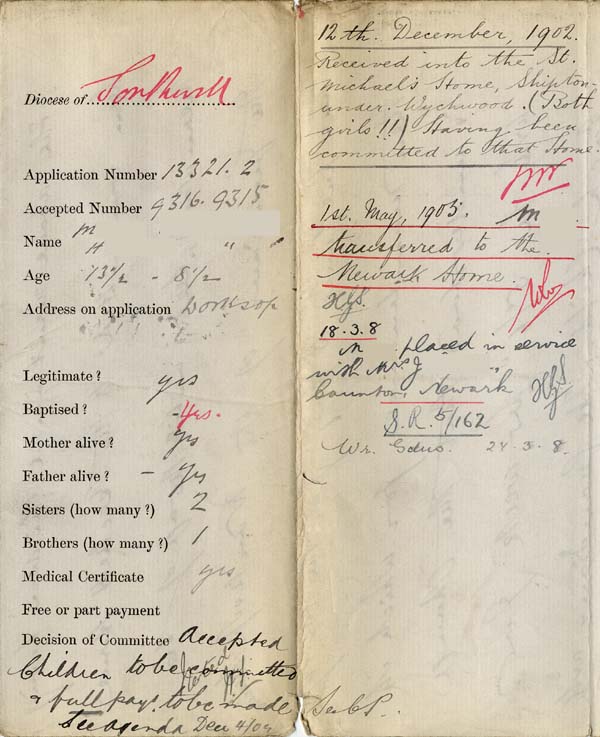 Diocese of Southwell
Application Number 13321.2
Accepted Number 9316. 9315
Name M
H " "
Age 13½ - 8½
Address on application Worksop
Legitimate? yes
Baptised? -Yes.
Mother alive? yes
Father alive? - yes
Sisters (how many?) 2
Brothers (how many?) 1
Medical Certificate yes
Free or part payment
Decision of Committee Accepted
Children to be committed
& full payt to be made
See agenda Dec 4/02
12th. December, 1902.
Received into the St.
Michael's Home, Shipton-
under-Wychwood. (Both
girls!!) Having been
committed to that Home.
1st. May, 1905. M
transferred to the
Newark Home.
HGS.
18.3.8
M placed in service
with Mrs J "
Newark HGS
S.R. 5/162
Wr. 24.3.8.